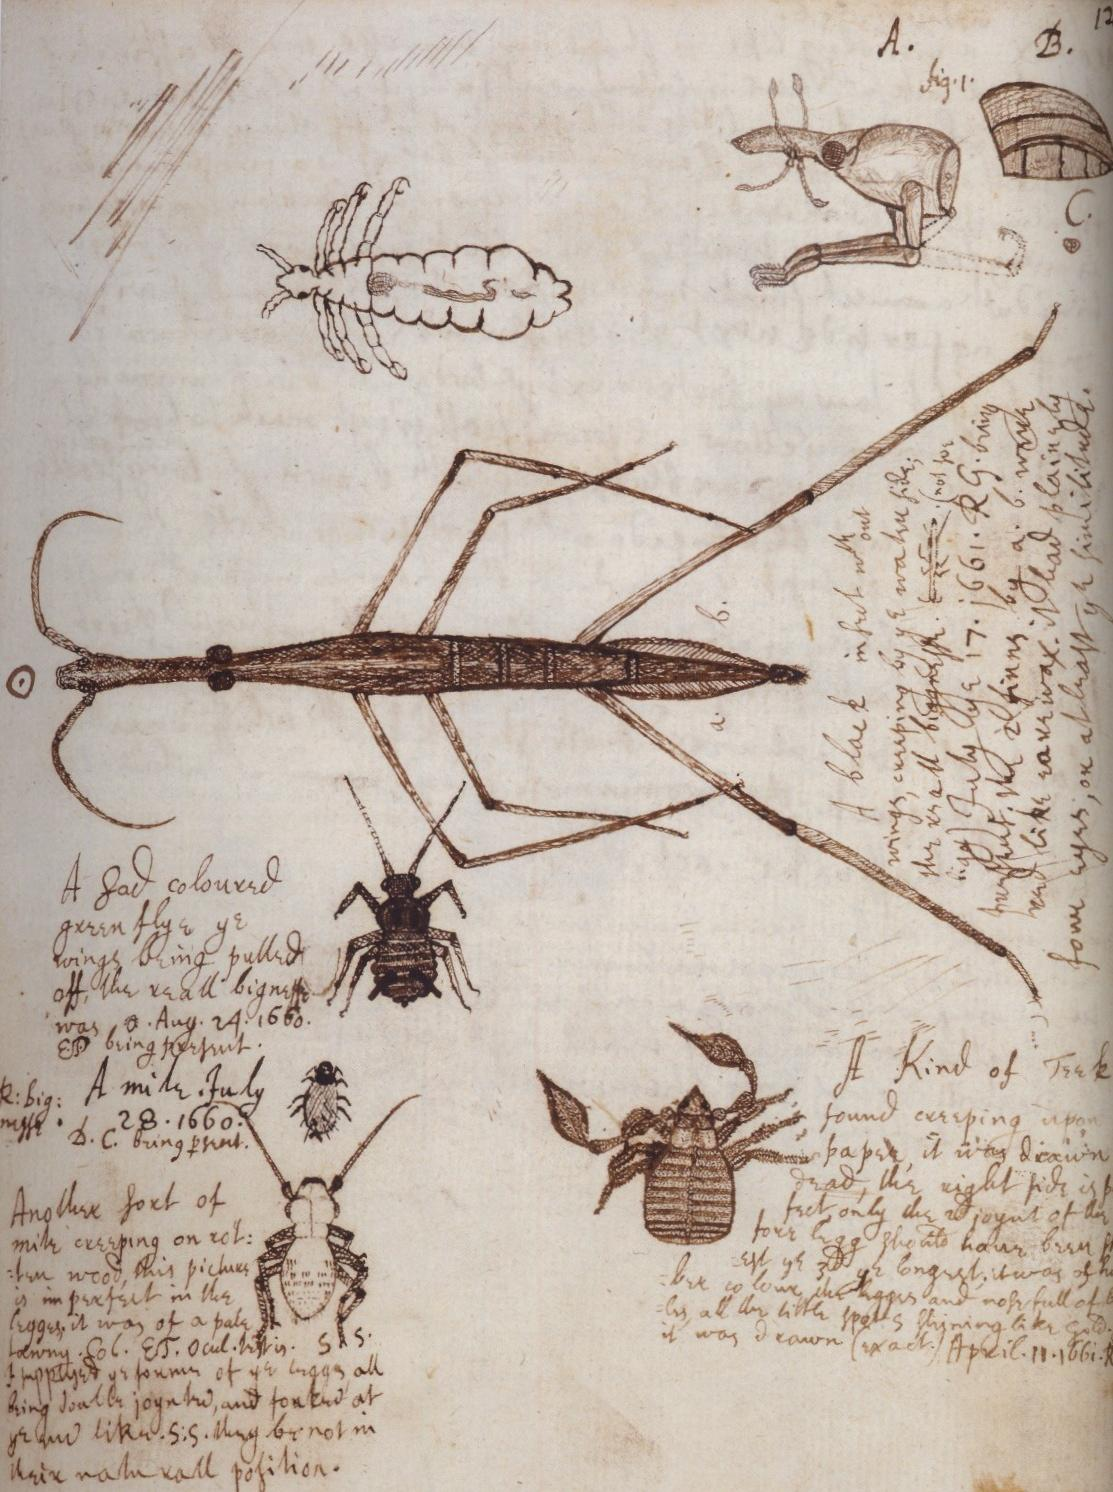 12
A.
B.
fig. 1.
C.
A black insect with out
wings, creeping by ye water side;
the reall bignesse. (not so
big) July ye 17. 1661. R G. being
present. the 2 finns by a. b. were
red like sarewax. it had plainely
foure eyes, or at least ye similitude.
b.
a.
A sad coloured
green flye ye
wings being pulled
off, the reall bignesse
was o. Aug. 24. 1660.
ET being present.
R: big:
nesse .
A mite. July
28. 1660.
D. C. being prsent.
Another sort of
mite creeping on rot:
=ten wood, this picture
is imperfect in the
legges, it was of a pale
tawny. Col. ET. Ocul. testis. S S.
I supplyed ye forme of ye legges all
being double joynted, and forked at
ye end like. S:S. they be not in
their naturall position.
A Kind of Teek
found creeping upon
paper, it was drawn
dead, the right side is
fect, only the 2d joynt of the
fore legg should have been
est ye 3d ye longest. it was of
ber colour, the legges and nose full of
les, all the little spots shining like gold.
it was drawn (exact.) April. 11. 1661. R